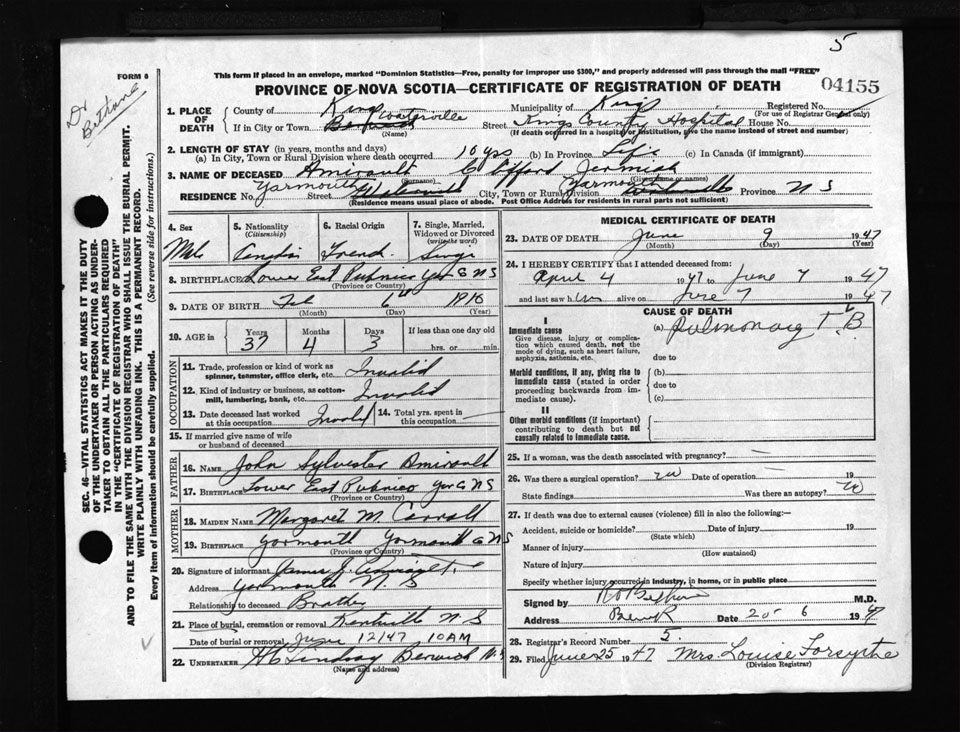 5
FORM 6
This form if placed in an envelope, marked "Dominion Statistics—Free, penalty for improper use $300," and properly addressed will pass through the mail "FREE"
Dr Bethune
PROVINCE OF NOVA SCOTIA—CERTIFICATE OF REGISTRATION OF DEATH
04155
1. PLACE OF DEATH
County of Kings Municipality of Kings Registered No.
(For use of Registrar General only)
If in City or Town Waterville Street Kings County Hospital House No.
(Name) (If death occurred in a hospital or institution, give the name instead of street and number)
2. LENGTH OF STAY (in years, months and days)
(a) In City, Town or Rural Division where death occurred 10 yrs (b) In Province Life (c) In Canada (if immigrant)
3. NAME OF DECEASED Amirault Clifford
(Surname) (Given name or names)
RESIDENCE No. Yarmouth Street City, Town or Rural Division Yarmouth Province N S
(Residence means usual place of abode. Post Office Address for residents in rural parts not sufficient)
4. Sex 5. Nationality (Citizenship) 6. Racial Origin 7. Single, Married, Widowed or Divorced (write the word)
Male Canadian French Single
8. BIRTHPLACE Lower East Pubnico Yar Co N S
(Province or Country)
9. DATE OF BIRTH Feb 6th 1910
(Month) (Day) (Year)
10. AGE in Years 37 Months 4 Days 3 If less than one day old hrs. or min.
OCCUPATION
11. Trade, profession or kind of work as spinner, teamster, office clerk, etc. Invalid
12. Kind of industry or business, as cotton-mill, lumbering, bank, etc. Invalid
13. Date deceased last worked at this occupation 14. Total yrs. spent in this occupation
15. If married give name of wife or husband of deceased
FATHER
16. NAME John Sylvester Amirault
17. BIRTHPLACE Lower East Pubnico Yar Co N S
(Province or Country)
MOTHER
18. MAIDEN NAME Margaret M. Carroll
19. BIRTHPLACE Yarmouth Yarmouth Co N S
(Province or Country)
20. Signature of informant
Address Yarmouth N. S
Relationship to deceased Brother
21. Place of burial, cremation or removal Kentville N S
Date of burial or removal June 12/47 10 AM
22. UNDERTAKER H C Lindsay Berwick N.S
(Name and address)
MEDICAL CERTIFICATE OF DEATH
23. DATE OF DEATH June 9 1947
(Month) (Day) (Year)
24. I HEREBY CERTIFY that I attended deceased from:
April 4 1947 to June 7 1947
and last saw him alive on June 7 1947
CAUSE OF DEATH
I
Immediate cause
Give disease, injury or complication which caused death, not the mode of dying, such as heart failure, asphyxia, asthenia, etc.
(a) Pulmonary T B
due to
Morbid conditions, if any, giving rise to immediate cause (stated in order proceeding backwards from immediate cause).
(b)
due to
(c)
II
Other morbid conditions (if important) contributing to death but not causally related to immediate cause.
25. If a woman, was the death associated with pregnancy?
26. Was there a surgical operation? no Date of operation 19
State findings Was there an autopsy? no
27. If death was due to external causes (violence) fill in also the following:—
Accident, suicide or homicide? Date of injury 19
(State which)
Manner of injury
(How sustained)
Nature of injury
Specify whether injury occurred in industry, in home, or in public place
Signed by Bethune M.D.
Address Berwick Date 20-6 1947
28. Registrar's Record Number 5.
29. Filed June 25 1947 Mrs. Louise Forsythe
(Division Registrar)
SEC. 46—VITAL STATISTICS ACT MAKES IT THE DUTY OF THE UNDERTAKER OR PERSON ACTING AS UNDERTAKER TO OBTAIN ALL THE PARTICULARS REQUIRED IN THE "CERTIFICATE OF REGISTRATION OF DEATH"
AND TO FILE THE SAME WITH THE DIVISION REGISTRAR WHO SHALL ISSUE THE BURIAL PERMIT.
WRITE PLAINLY WITH UNFADING INK. THIS IS A PERMANENT RECORD.
Every item of information should be carefully supplied. (See reverse side for instructions.)